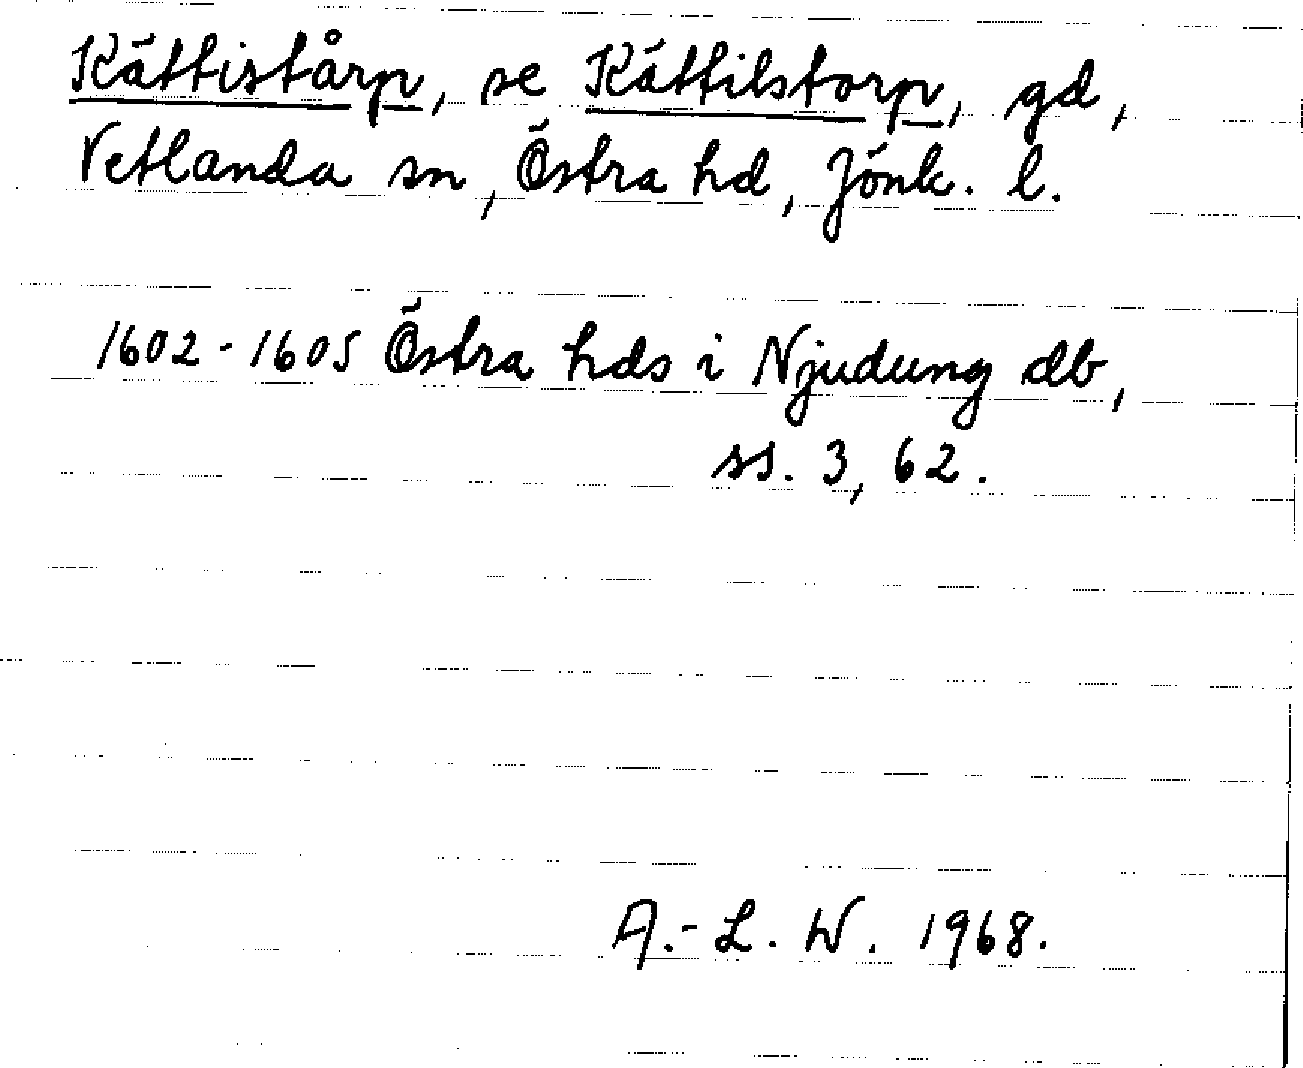 Kättistårp, se Kättilstorp, gd,
Vetlanda sn, Östra hd, Jönk. l.
1602-1605 Östra hds i Njudung db,
ss. 3, 62.
A.-L. W. 1968.